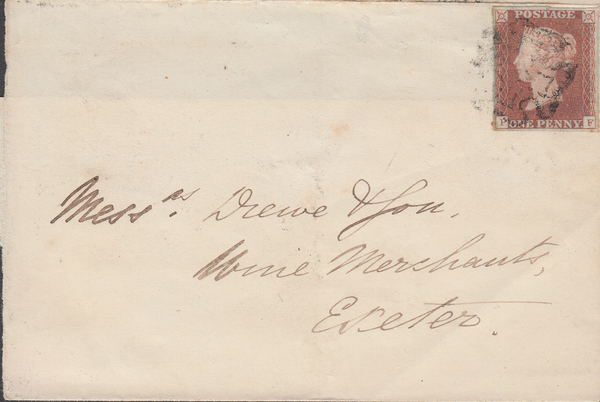 POSTAGE
P ONE PENNY. F
Mess.rs Drewe & Son,
Wine Merchants,
Exeter.